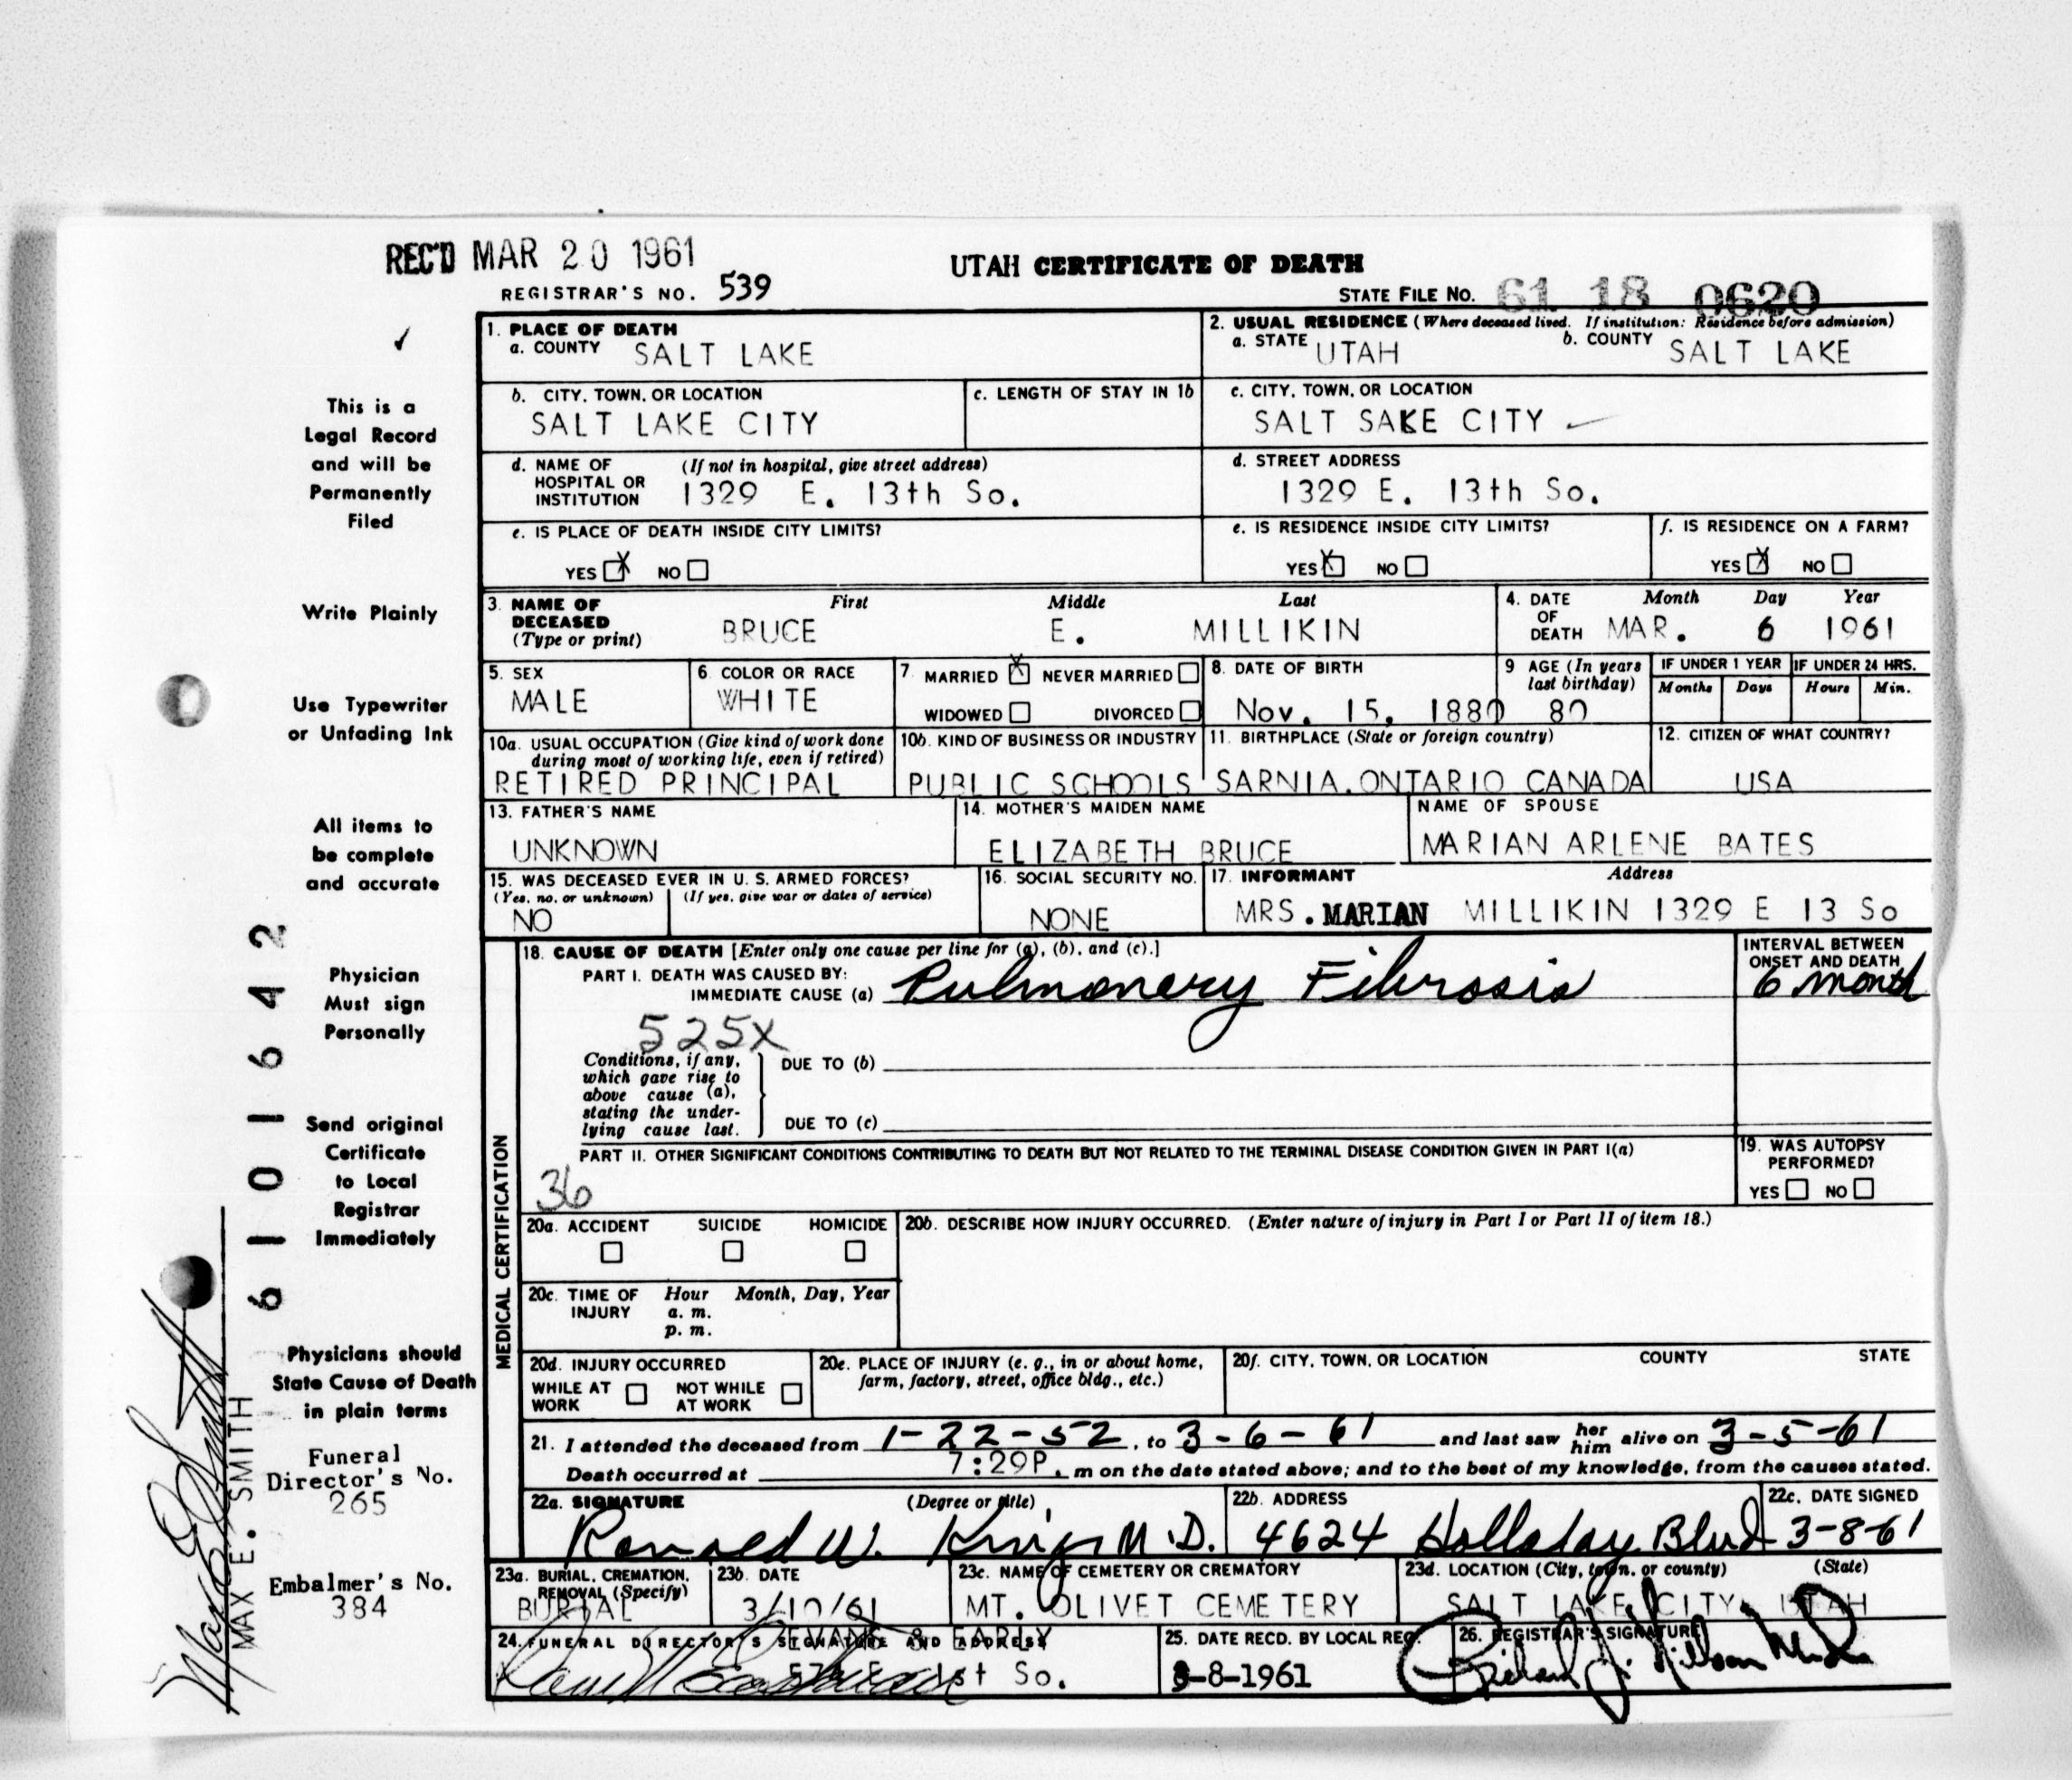 REC'D MAR 20 1961
UTAH CERTIFICATE OF DEATH
REGISTRAR'S NO. 539
STATE FILE NO. 61 18 0620
1. PLACE OF DEATH
a. COUNTY SALT LAKE
2. USUAL RESIDENCE (Where deceased lived. If institution: Residence before admission)
a. STATE UTAH b. COUNTY SALT LAKE
b. CITY, TOWN, OR LOCATION
SALT LAKE CITY
c. LENGTH OF STAY IN 1b
c. CITY, TOWN, OR LOCATION
SALT SAKE CITY
d. NAME OF HOSPITAL OR INSTITUTION (If not in hospital, give street address)
1329 E. 13th So.
d. STREET ADDRESS
1329 E. 13th So.
e. IS PLACE OF DEATH INSIDE CITY LIMITS?
YES X NO
e. IS RESIDENCE INSIDE CITY LIMITS?
YES X NO
f. IS RESIDENCE ON A FARM?
YES X NO
3. NAME OF DECEASED (Type or print)
First Middle Last
BRUCE E. MILLIKIN
4. DATE OF DEATH
Month Day Year
MAR. 6 1961
5. SEX
MALE
6. COLOR OR RACE
WHITE
7. MARRIED X NEVER MARRIED
WIDOWED DIVORCED
8. DATE OF BIRTH
Nov. 15, 1880
9 AGE (In years last birthday)
80
IF UNDER 1 YEAR
Months Days
IF UNDER 24 HRS.
Hours Min.
10a. USUAL OCCUPATION (Give kind of work done during most of working life, even if retired)
RETIRED PRINCIPAL
10b. KIND OF BUSINESS OR INDUSTRY
PUBLIC SCHOOLS
11. BIRTHPLACE (State or foreign country)
SARNIA, ONTARIO CANADA
12. CITIZEN OF WHAT COUNTRY?
USA
13. FATHER'S NAME
UNKNOWN
14. MOTHER'S MAIDEN NAME
ELIZABETH BRUCE
NAME OF SPOUSE
MARIAN ARLENE BATES
15. WAS DECEASED EVER IN U. S. ARMED FORCES?
(Yes, no, or unknown) (If yes, give war or dates of service)
NO
16. SOCIAL SECURITY NO.
NONE
17. INFORMANT Address
MRS. MARIAN MILLIKIN 1329 E 13 So
18. CAUSE OF DEATH [Enter only one cause per line for (a), (b), and (c).]
PART I. DEATH WAS CAUSED BY:
IMMEDIATE CAUSE (a) Pulmonary Fibrosis
INTERVAL BETWEEN ONSET AND DEATH
6 month
525X
Conditions, if any, which gave rise to above cause (a), stating the underlying cause last.
DUE TO (b)
DUE TO (c)
PART II. OTHER SIGNIFICANT CONDITIONS CONTRIBUTING TO DEATH BUT NOT RELATED TO THE TERMINAL DISEASE CONDITION GIVEN IN PART I(a)
36
19. WAS AUTOPSY PERFORMED?
YES NO
20a. ACCIDENT SUICIDE HOMICIDE
20b. DESCRIBE HOW INJURY OCCURRED. (Enter nature of injury in Part I or Part II of item 18.)
20c. TIME OF INJURY Hour Month, Day, Year
a. m.
p. m.
20d. INJURY OCCURRED
WHILE AT WORK NOT WHILE AT WORK
20e. PLACE OF INJURY (e. g., in or about home, farm, factory, street, office bldg., etc.)
20f. CITY, TOWN, OR LOCATION COUNTY STATE
21. I attended the deceased from 1-22-52, to 3-6-61 and last saw her him alive on 3-5-61
Death occurred at 7:29P. m on the date stated above; and to the best of my knowledge, from the causes stated.
22a. SIGNATURE (Degree or title)
Ronald W. King M.D.
22b. ADDRESS
4624 Holladay Blvd
22c. DATE SIGNED
3-8-61
23a. BURIAL, CREMATION, REMOVAL (Specify)
BURIAL
23b. DATE
3/10/61
23c. NAME OF CEMETERY OR CREMATORY
MT. OLIVET CEMETERY
23d. LOCATION (City, town, or county) (State)
SALT LAKE CITY, UTAH
24. FUNERAL DIRECTOR'S SIGNATURE AND ADDRESS
EVANS & EARLY
574 E. 1st So.
25. DATE RECD. BY LOCAL REG.
3-8-1961
26. REGISTRAR'S SIGNATURE
MEDICAL CERTIFICATION
This is a
Legal Record
and will be
Permanently
Filed
Write Plainly
Use Typewriter
or Unfading Ink
All items to
be complete
and accurate
Physician
Must sign
Personally
Send original
Certificate
to Local
Registrar
Immediately
Physicians should
State Cause of Death
in plain terms
Funeral
Director's No.
265
Embalmer's No.
384
61 01642
Max E. Smith
MAX E. SMITH